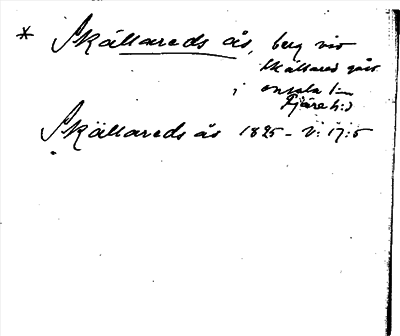 * Skällareds ås, berg vid
Skällared gård
i onsala s:n
Fjäre h:d
Skällareds ås 1825 - V: 17:5